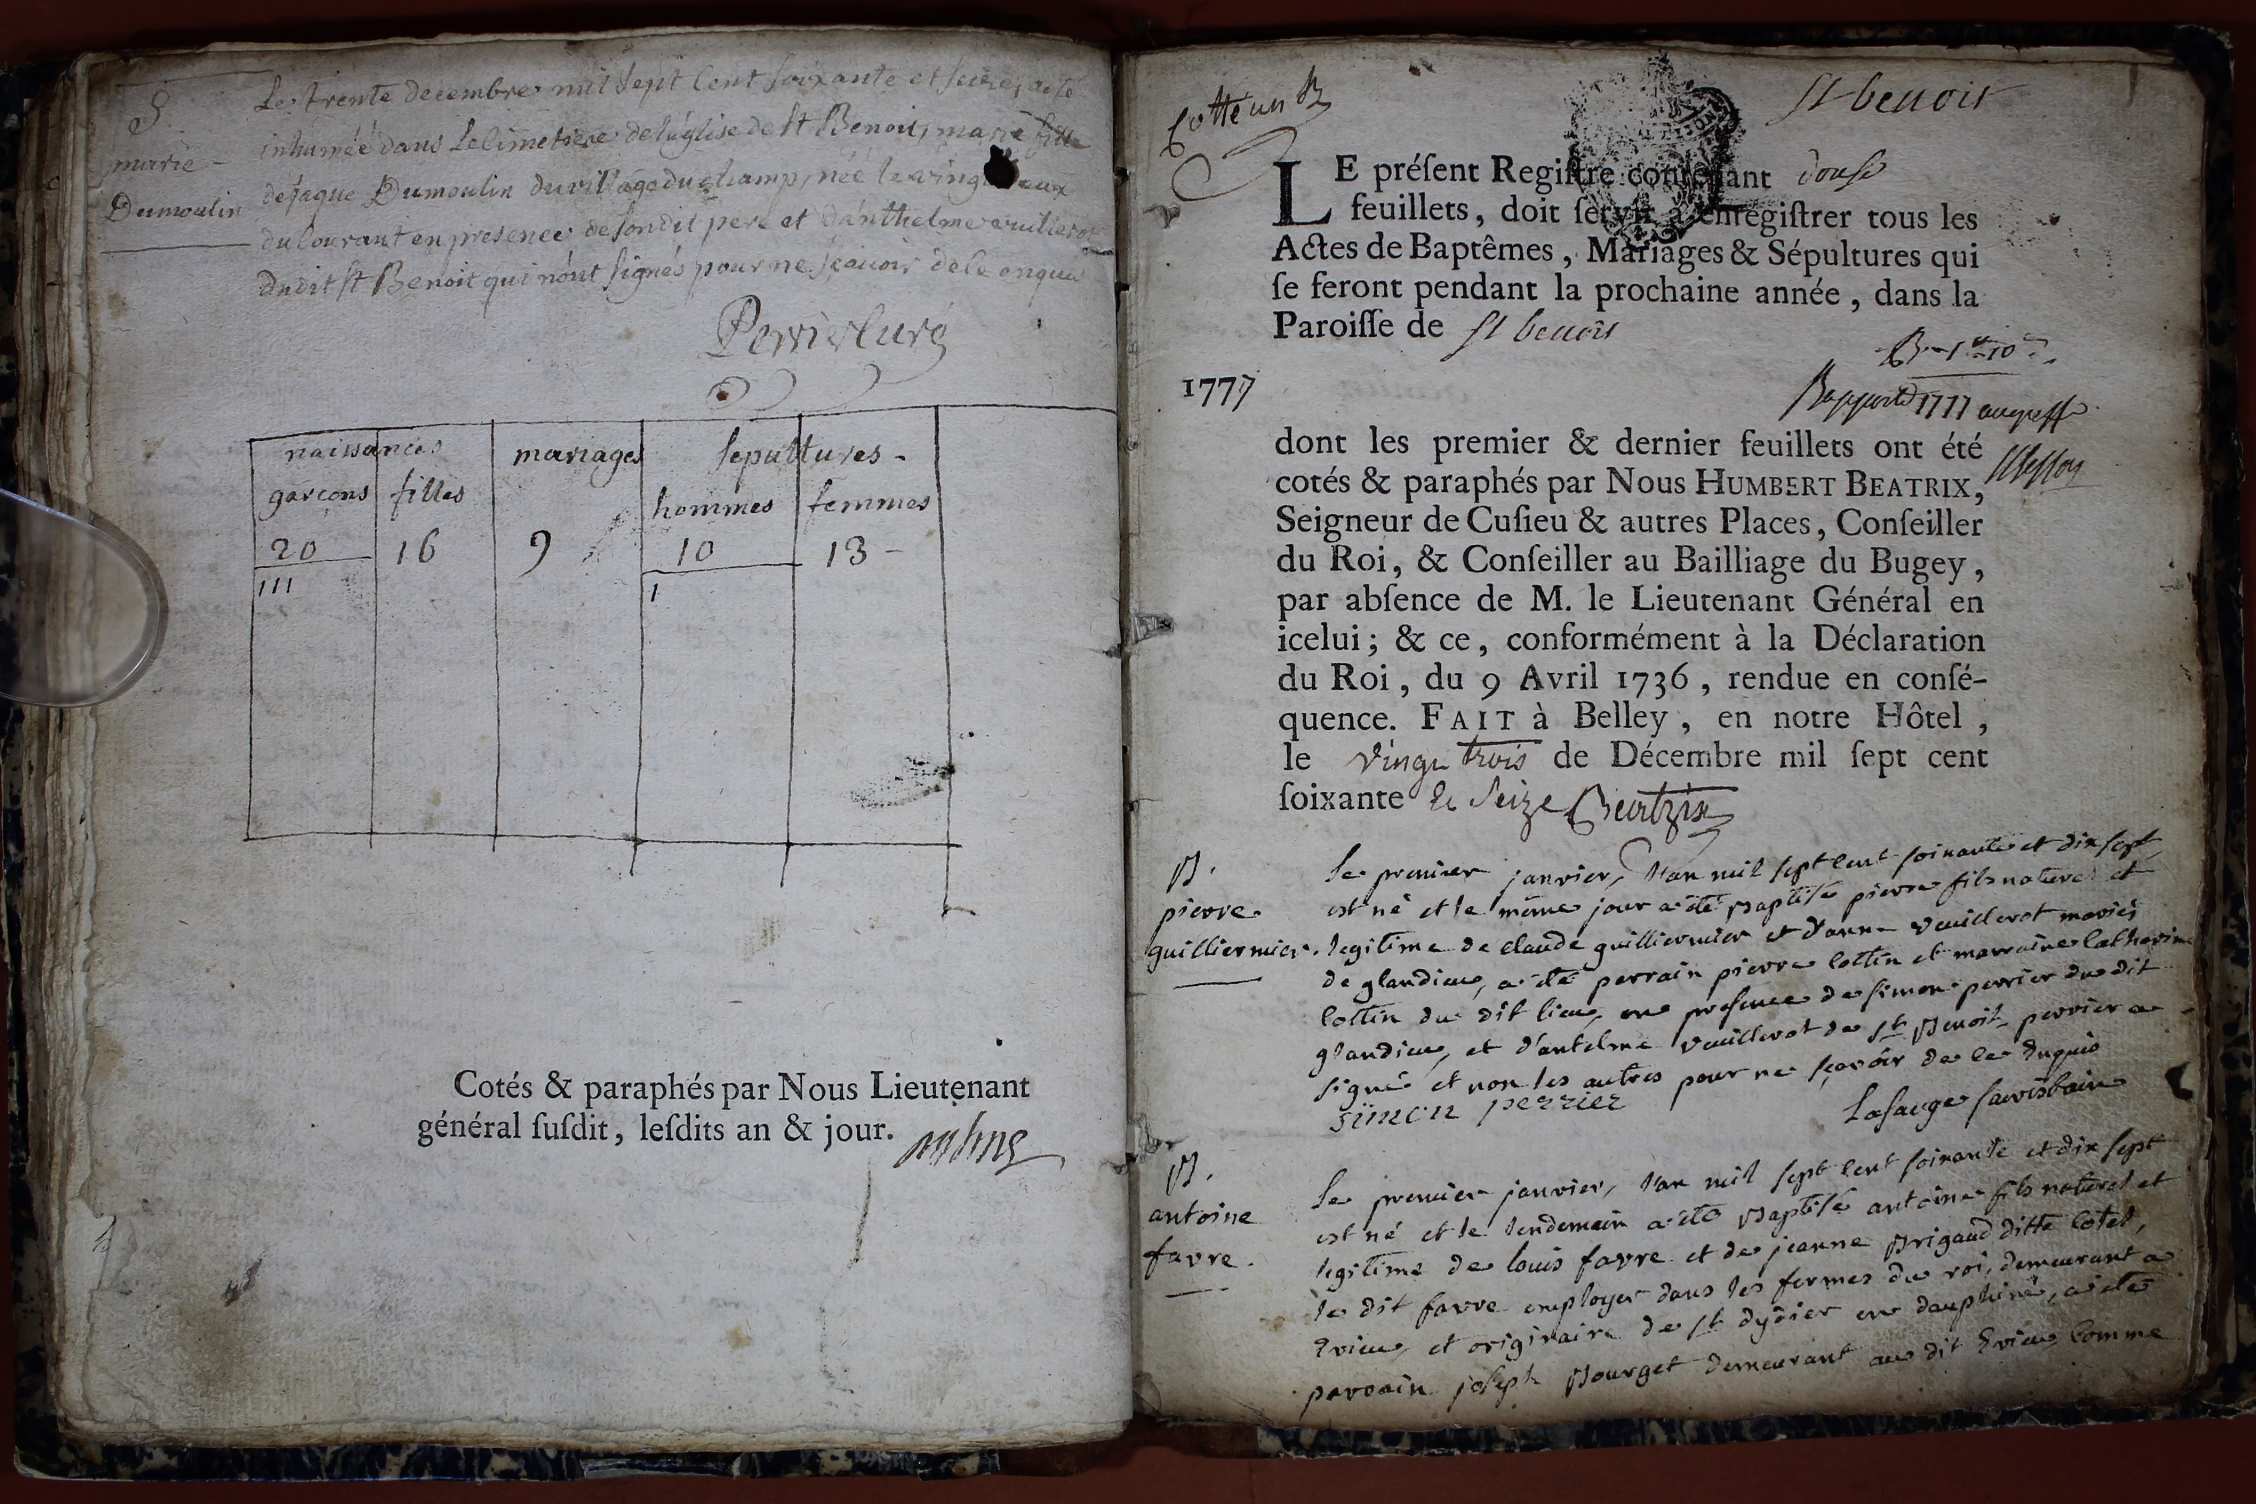 S.
marie
Dumoulin
Le trente decembre mil sept cent soixante et seize, a eté
inhumée dans le cimetiere de l'église de st Benoit, marie fille
de jaque Dumoulin du village du champ, née le vingt deux
du courant en presence de son dit pere et d'anthelme vuillerot
dudit st Benoit qui n'ont signés pour ne sçavoir de ce enquis
Perrier Curé
naissances mariages sepultures
garçons filles hommes femmes
20 16 9 10 13
111 1
Cotés & paraphés par Nous Lieutenant
général ſuſdit, leſdits an & jour.
Cotté un
St benoit
LE préſent Regiſtre contenant douse
feuillets, doit ſervir à enregiſtrer tous les
Actes de Baptêmes, Mariages & Sépultures qui
ſe feront pendant la prochaine année, dans la
Paroiſſe de St benoit
1777
Rapporté 1777 au greffe
dont les premier & dernier feuillets ont été
cotés & paraphés par Nous HUMBERT BEATRIX,
Seigneur de Cuſieu & autres Places, Conſeiller
du Roi, & Conſeiller au Bailliage du Bugey,
par abſence de M. le Lieutenant Général en
icelui; & ce, conformément à la Déclaration
du Roi, du 9 Avril 1736, rendue en conſé-
quence. FAIT à Belley, en notre Hôtel,
le vingt trois de Décembre mil ſept cent
ſoixante & seize Beatrix
B.
pierre
guilliermier.
le premier janvier, l'an mil sept cent soixante et dix sept
est né et le même jour a été baptisé pierre fils naturel et
legitime de claude guilliermier et d'anne vuillerot mariés
de glandieu, a été parrain pierre cottin et marraine Catherine
cottin du dit lieu, en presence de simon perrier du dit
glandieu, et d'antelme vuillerot de st Benoit, perrier a
signé et non les autres pour ne sçavoir de ce enquis
simon perrier
B.
antoine
favre.
le premier janvier, l'an mil sept cent soixante et dix sept
est né et le lendemain a été baptisé antoine fils naturel et
legitime de louis favre et de jeanne Brigaud ditte Cotel,
le dit favre employer dans les fermes du roi, demeurant a
Evieu, et originaire de st dydier en dauphiné, a été
parrain joseph Bourget demeurant au dit Evieu comme